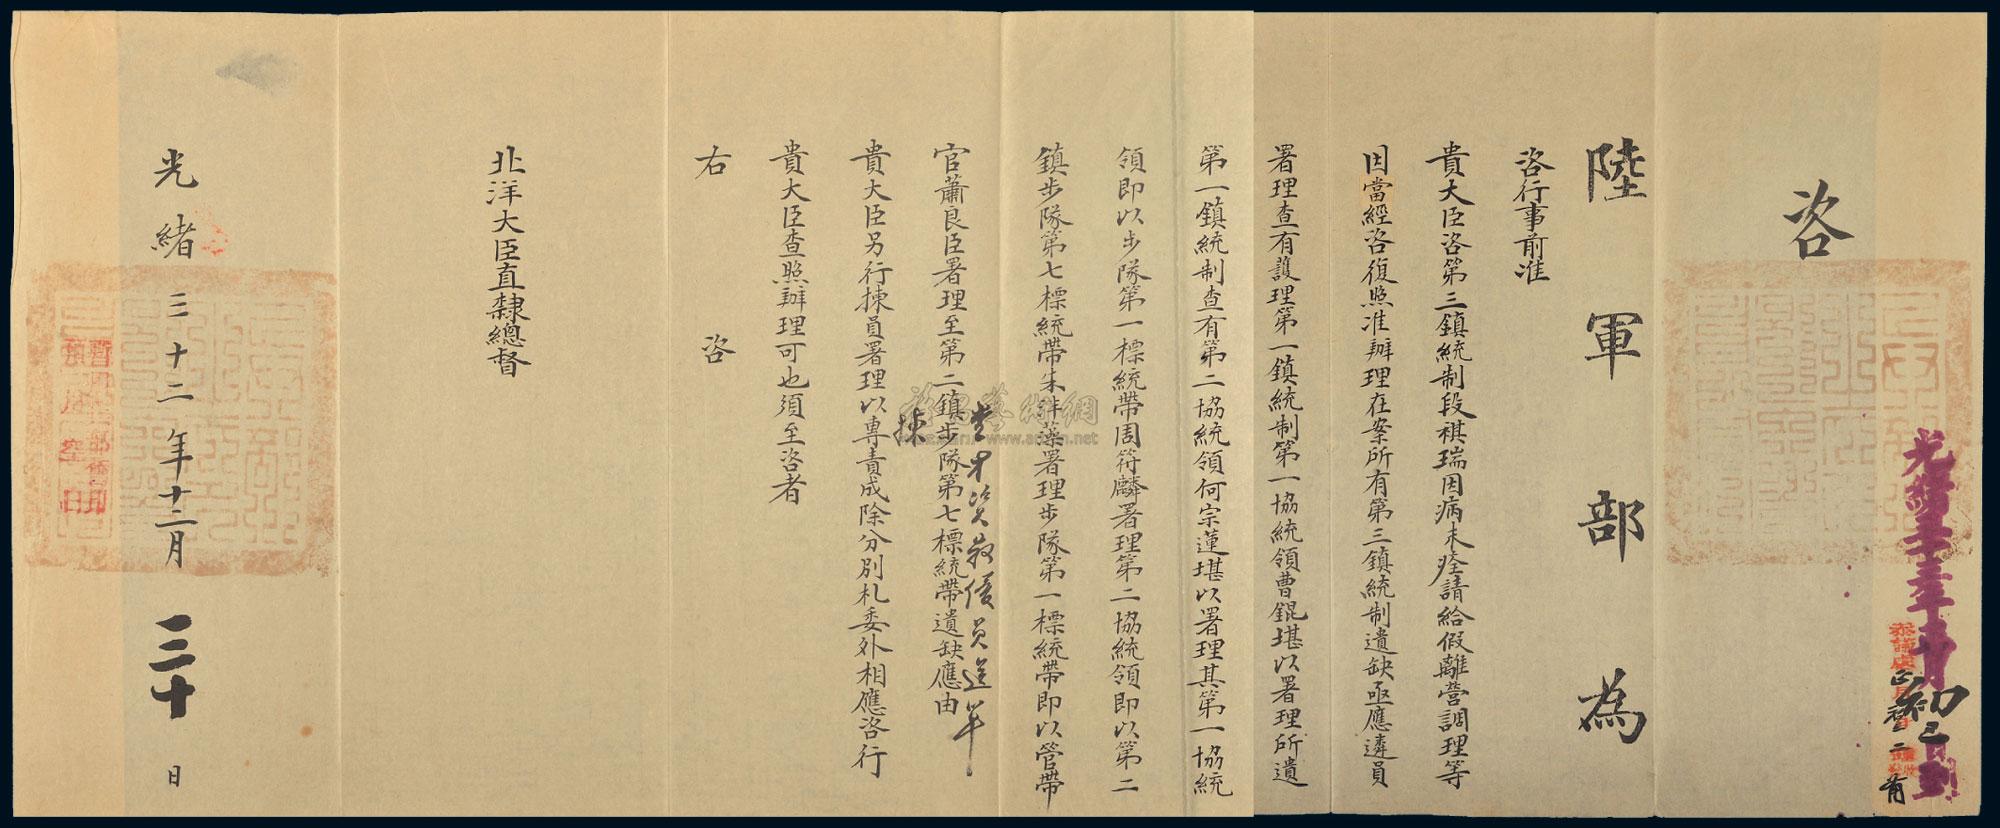 咨
陸軍部為
咨行事前准
貴大臣咨第三鎮統制段祺瑞因病未痊請給假離營調理等
因當經咨復照准辦理在案所有第三鎮統制遺缺亟應遴員
署理查有護理第一鎮統制第一協統領曹錕堪以署理所遺
第一鎮統制查有第二協統領何宗蓮堪以署理其第一協統
領即以步隊第一標統帶周符麟署理第二協統領即以第二
鎮步隊第七標統帶朱泮藻署理步隊第一標統帶即以管帶
官蕭良臣署理至第二鎮步隊第七標統帶遺缺應由
貴大臣另行揀員署理以專責成除分別札委外相應咨行
貴大臣查照辦理可也須至咨者
右咨
北洋大臣直隸總督
光緒三十二年十二月三十日